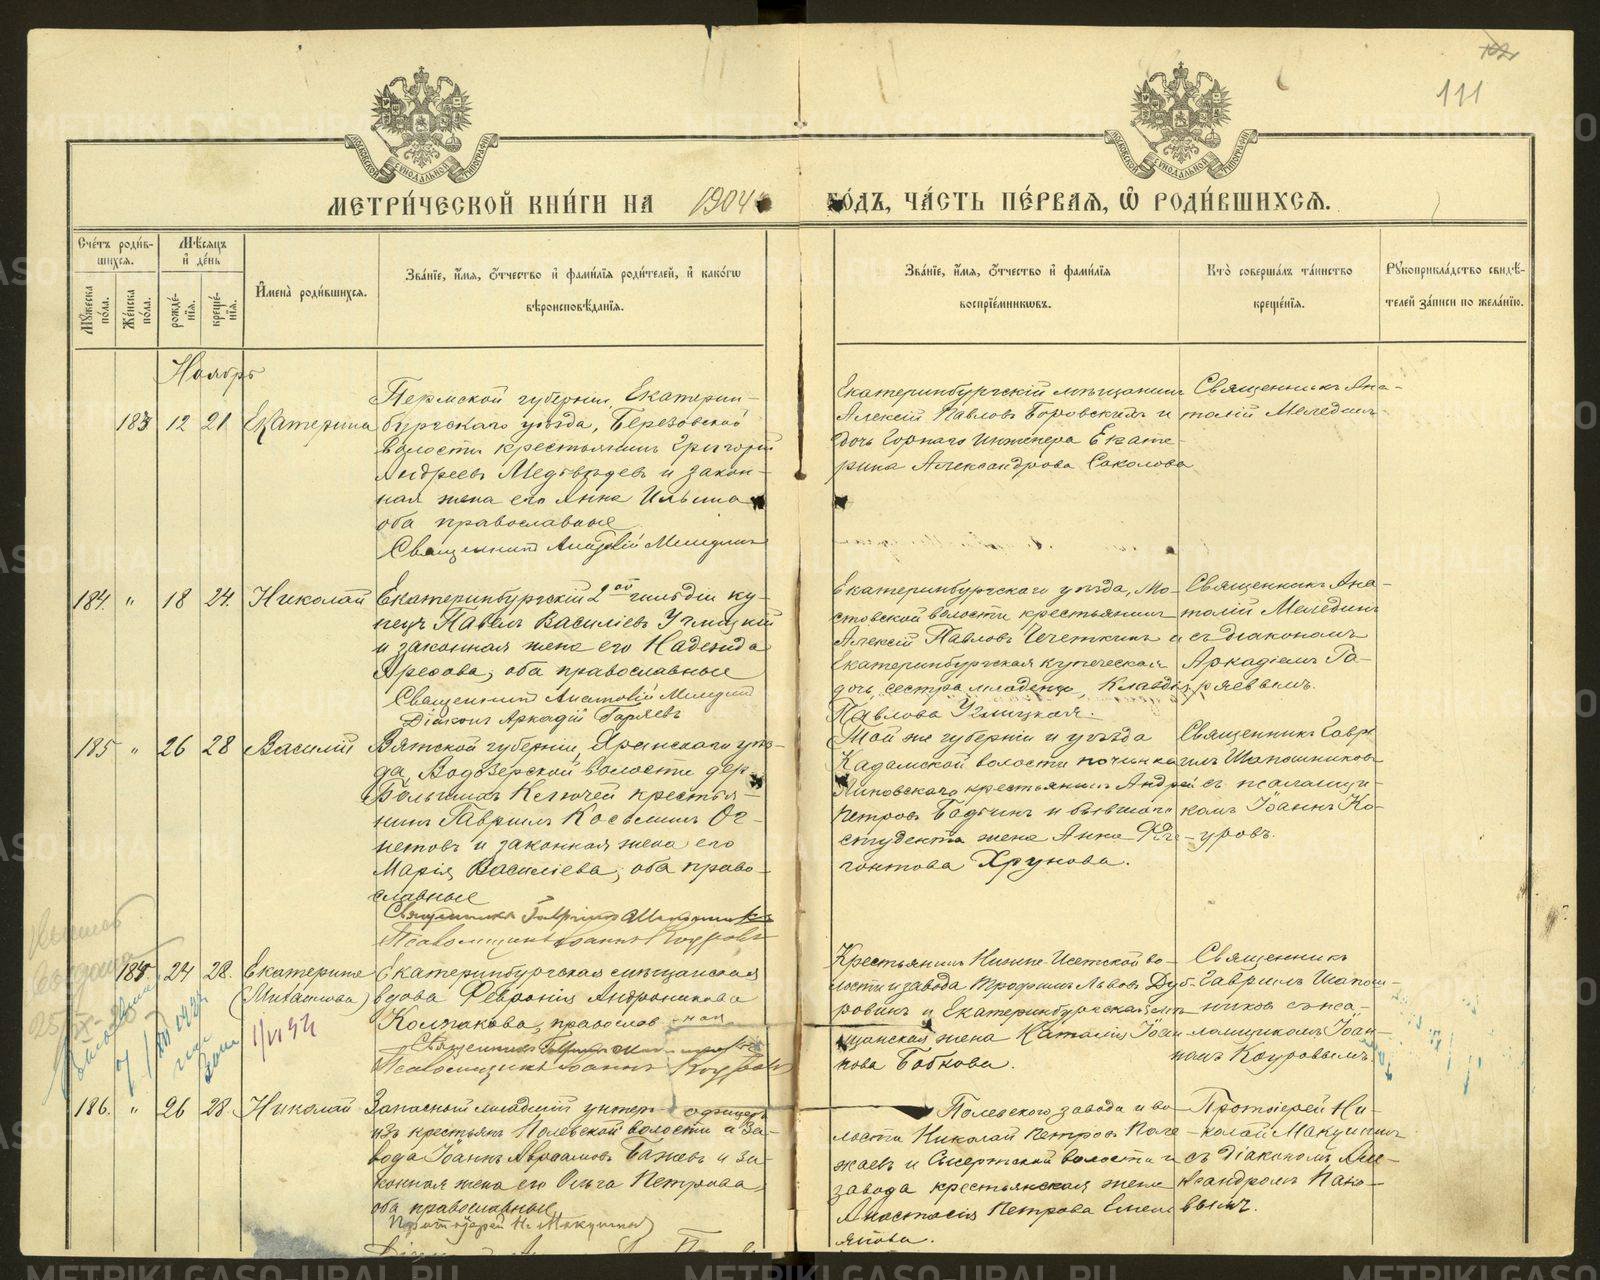 111
МОСКОВСКОЙ СУНОДАЛЬНОЙ ТИПОГРАФІИ
МОСКОВСКОЙ СУНОДАЛЬНОЙ ТИПОГРАФІИ
МЕТРИ́ЧЕСКОЙ КНИ́ГИ НА 1904
ГО́ДЪ, ЧА́СТЬ ПЕ́РВАѦ, Ѡ҆ РОДИ́ВШИХСѦ.
Сче́тъ роди́в-
шихсѧ.
Мѣ́сѧцъ
и҆ де́нь
Мꙋ́жеска
по́ла.
Же́нска
по́ла.
рожде́-
нїѧ.
креще́-
нїѧ.
И҆мена̀ роди́вшихсѧ.
Зва́нїе, и҆́мѧ, ѻ҆́тчество и҆ фами́лїѧ роди́телей, и҆ како́гѡ
вѣроисповѣ́данїѧ.
Зва́нїе, и҆́мѧ, ѻ҆́тчество и҆ фами́лїѧ
воспрїе́мникѡвъ.
Кто̀ соверша́лъ та́инство
креще́нїѧ.
Рꙋкоприкла́дство свидѣ́-
телей за́писи по жела́нїю.
Ноябрь
183 12 21 Екатерина
Пермской губерніи, Екатерин-
бургскаго уѣзда, Березовской
волости крестьянинъ Григорій
Андреевъ Медвѣдевъ и закон-
ная жена его Анна Ильина
оба православные
Священникъ Анатолій Меледин
Екатеринбургскій мѣщанинъ
Алексій Павловъ Боровскихъ и
дочь Горнаго Инженера Екате-
рина Александрова Соколова
Священникъ Ана-
толій Мелединъ
184. " 18 24. Николай
Екатеринбургскій 2ой гильдіи ку-
пецъ Павелъ Василіевъ Углицкій
и законная жена его Надежда
оба православные
Священникъ Анатолій Меледин
Діаконъ Аркадій Гаряевъ
Екатеринбургскаго уѣзда, Мо-
стовской волости крестьянинъ
Алексій Павловъ и
Екатеринбургская купеческая
дочь, сестра младенца, Клавдія
Павлова Углицкая.
Священникъ Ана-
толій Мелединъ
съ діакономъ
Аркадіемъ Га-
ряевымъ.
185 " 26 28 Василій
Вятской губерніи, Яранскаго уѣз-
да, Водозерской волости дер.
Большихъ Ключей крестья-
нинъ Гавріилъ Косьминъ Ог-
нетовъ и законная жена его
Марія Василіева, оба право-
славные
Священникъ Гавріилъ Шапошников
Псаломщикъ Іоаннъ Коуровъ
Той же губерніи и уѣзда
Кадамской волости починка
Липовскаго крестьянинъ Андрей
Петровъ и бывшаго
студента жена Анна
Хрунова.
Священникъ Гаврі-
илъ Шапошниковъ
съ псаломщи-
комъ Іоанн Ко-
уровъ.
185 24 28. Екатерина
(Михайлова)
Екатеринбургская мѣщанская
вдова Февронія Андроникова
Колпакова, православная
Священникъ
Псаломщикъ Іоаннъ Коуровъ
Крестьянинъ Нижне-Исетской во-
лости и завода Трофимъ Львовъ Дуб-
ровинъ и Екатеринбургская мѣ-
щанская жена Наталія Іоан-
нова Бобкова.
Священникъ
Гавріилъ Шапош-
никовъ съ пса-
ломщикомъ Іоан-
номъ Коуровымъ
186. " 26 28 Николай
Запасный младшій унтеръ-офицеръ
изъ крестьянъ Полевской волости и за-
вода Іоаннъ Аврамовъ Бажевъ и за-
конная жена его Ольга Петрова,
оба православные
Протоіерей Н. Макушинъ
Полевского завода и во-
лости Николай Петровъ
и Сысертской волости и
завода крестьянская жена
Анастасія Петрова Емель-
янова.
Протоіерей Ни-
колай Макушинъ
съ Діакономъ Але-
ксандромъ Пано-
вымъ.
METRIKI.GASO-URAL.RU